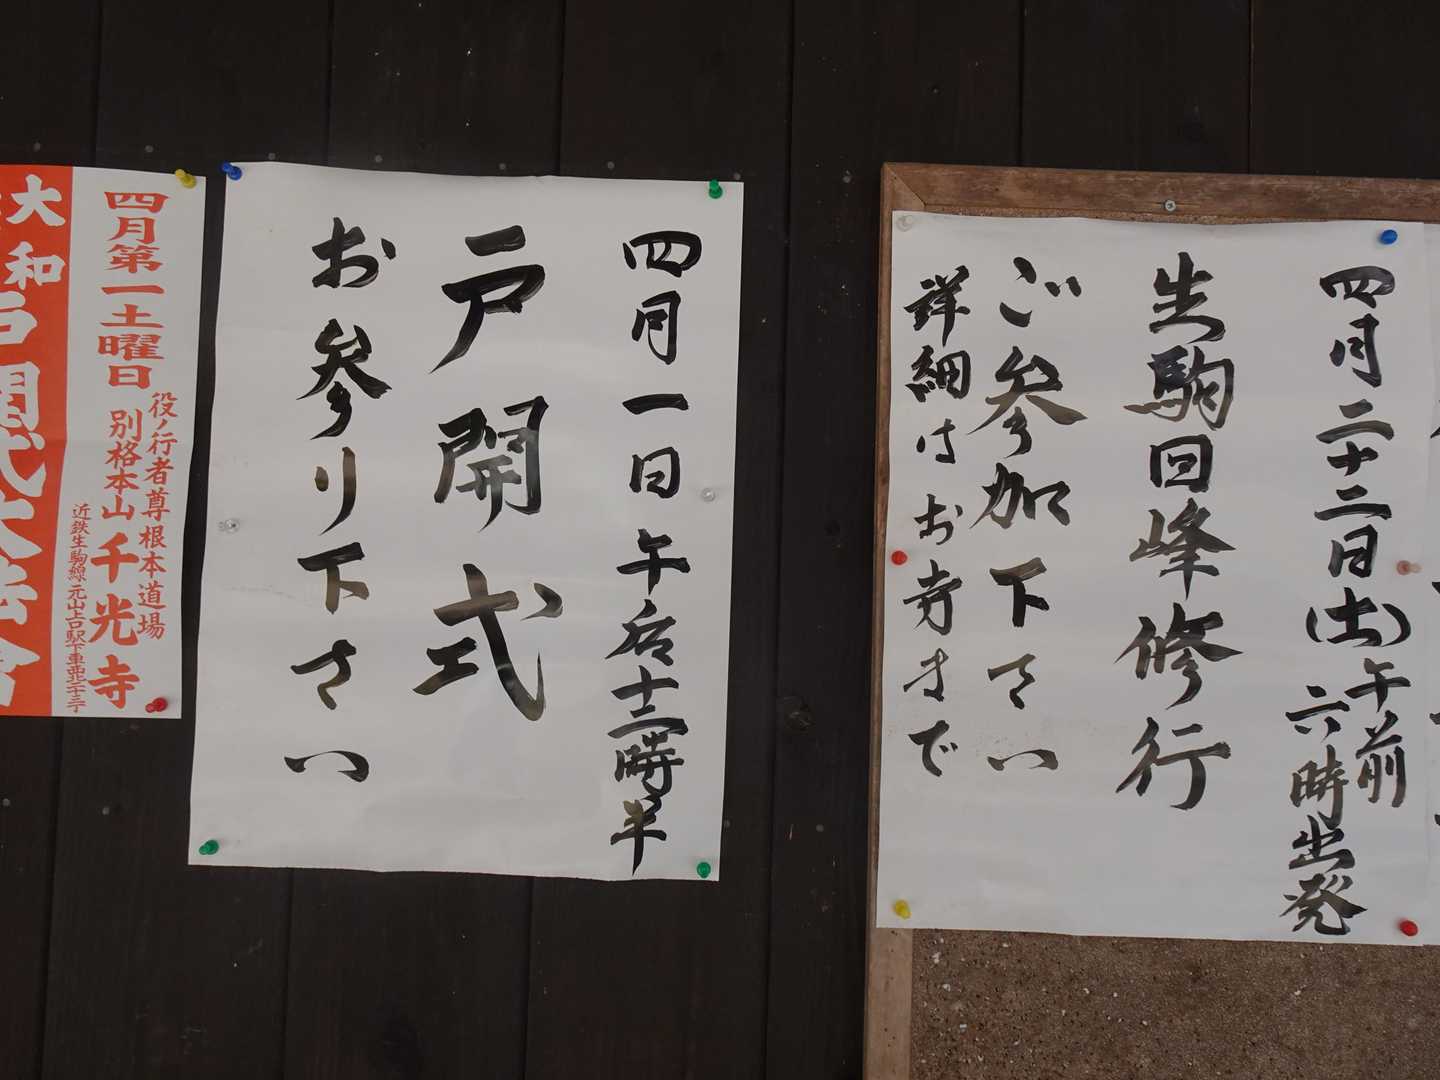 四月二十二日(土)午前
六時出発
生駒回峰修行
ご参加下さい
詳細はお寺まで
四月一日 午后十二時半
戸開式
お参り下さい
四月第一土曜日
役ノ行者尊根本道場
別格本山千光寺
近鉄生駒線元山上口駅下車西北二十三丁
大和
戸開式大法会